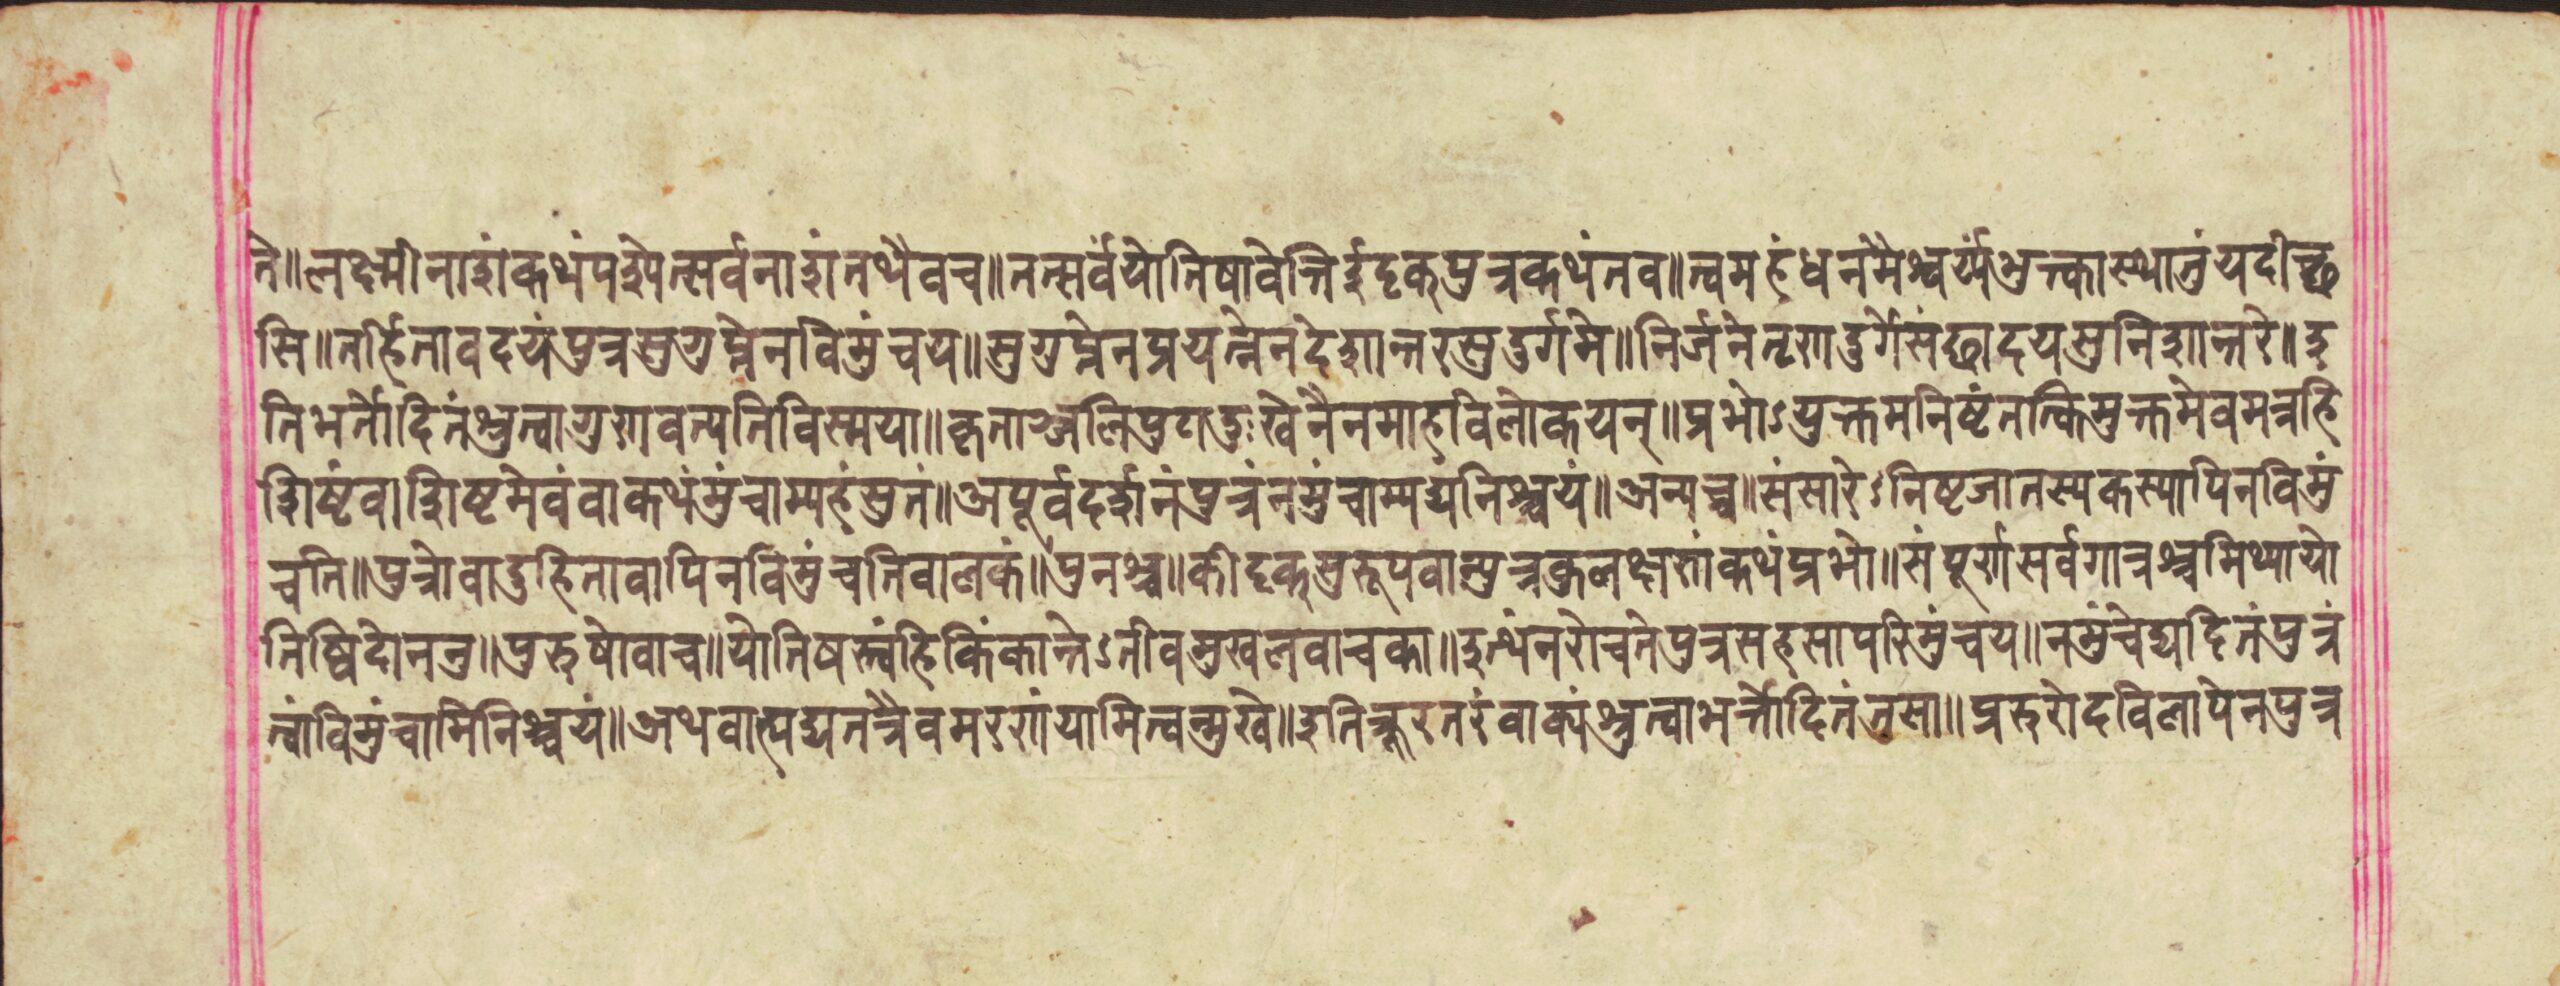 ते॥लक्ष्मीनाशंकथंपश्येत्सर्वनाशंतथैवच॥तत्सर्वंयोतिषावेत्तिईदृक्पुत्रकथंतव॥त्वमहंधनमैश्वर्य्यंभुक्त्कास्थातुंयदीच्छ
सि॥तर्हितावदयंपुत्रसुगुप्तेनविमुंचय॥सुगुप्तेनप्रयत्नेनदेशान्तरसुदुर्गमे॥निर्जनेतृणदुर्गेसंछादयसुनिशान्तरे॥इ
तिभर्तोदितंश्रुत्वागुणवत्यतिविस्मया॥कृताञ्जलिपुटादुःखेनैनमाहविलोकयन्॥प्रभोऽयुक्तमनिष्टंतत्किमुक्तमेवमत्रहि
शिष्टंवाशिष्टमेवंवाकथंमुंचाम्यहंसुतं॥अपूर्वदर्शनंपुत्रंनमुंचाम्यद्यंनिश्चयं॥अन्यच्च॥संसारेऽनिष्टजातस्यकस्यापिनविमुं
चति॥पुत्रोवादुहितावापिनविमुंचतिवालकं॥पुनश्च॥कीदृक्सुरूपवान्पुत्रकुलक्षणंकथंप्रभो॥संपूर्णसर्वगात्रश्चमिथ्यायो
तिष्विदोननु॥पुरुषोवाच॥योतिषस्त्वंहिकिंकान्तेऽतीवमुखलवाचका॥इत्थंनरोचतेपुत्रसहसापरिमुंचय॥नमुंचेद्यदितंपुत्रं
त्वांविमुंचामिनिश्चयं॥अथवात्पद्यतत्रैवमरणंयामित्वन्मुखे॥इतिक्रूरतरंवाक्यंश्रुत्वाभर्त्तोदितंतुसा॥प्ररुरोदविलापेनपुत्र